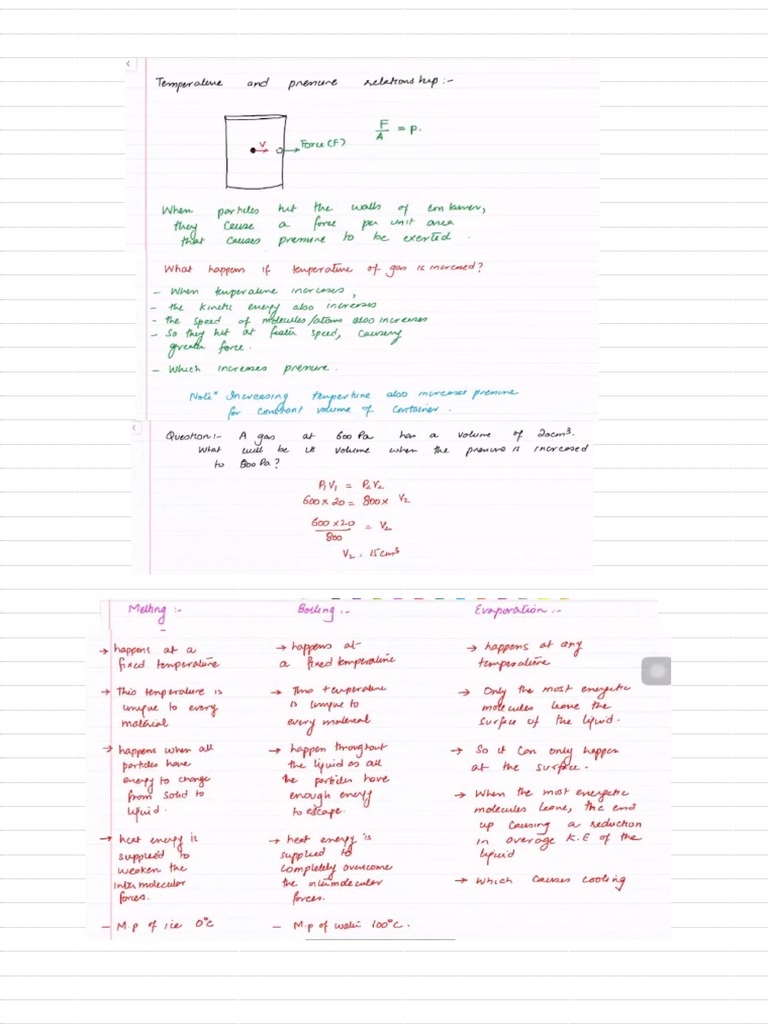 Temperature and pressure relationship:-
V
Force (F)
F
A
= P.
When particles hit the walls of container,
they cause a force per unit area
that causes pressure to be exerted.
What happen if temperature of gas is increased?
- When temperature increases,
- the kinetic energy also increases
- the speed of molecules/atoms also increases
- So they hit at faster speed, causing
greater force.
- Which increases pressure.
Note* Increasing temperture also increases pressure
for constant volume of container.
Question:- A gas at 600 Pa has a volume of 20cm³.
What will be its volume when the pressure is increased
to 800 Pa?
P₁V₁ = P₂V₂
600 × 20 = 800 × V₂
600 × 20
800
= V₂
V₂ = 15cm³
Melting :-
→ happens at a
fixed temperature
→ This temperature is
unique to every
material
→ happens when all
particles have
energy to change
from solid to
liquid.
→ heat energy is
supplied to
weaken the
intermolecular
forces.
- M.p of ice 0°c
Boiling :-
→ happens at
a fixed temperature
→ This temperature
is unique to
every material
→ happen throughout
the liquid as all
the particles have
enough energy
to escape.
→ heat energy is
supplied to
completely overcome
the intermolecular
forces.
- M.p of water 100°c.
Evaporation :-
→ happens at any
temperature
→ Only the most energetic
molecules leave the
surface of the liquid.
→ So it can only happen
at the surface.
→ When the most energetic
molecules leave, the end
up causing a reduction
in average K.E of the
liquid
→ which causes cooling